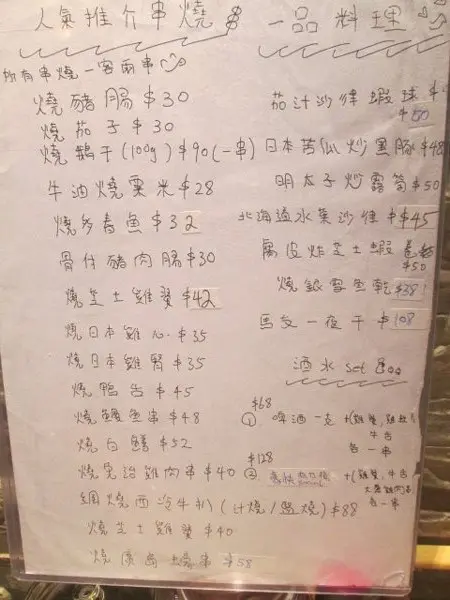 人氣推介串燒
所有串燒一客兩串
燒豬腸 $30
燒茄子 $30
燒鵝干(100g) $90(一串)
牛油燒粟米 $28
燒多春魚 $32
骨仔豬肉腸 $30
燒芝士雞翼 $42
燒日本雞心 $35
燒日本雞腎 $35
燒鴨舌 $45
燒鰻魚串 $48
燒白鱔 $52
燒免治雞肉串 $40
燒西冷牛扒(汁燒/鹽燒) $88
燒芝士雞翼 $40
燒廣島蠔串 $58
一品料理
茄汁沙律蝦球
$50
日本苦瓜炒黑豚 $48
明太子炒露筍 $50
北海道水菜沙律 $45
腐皮炸芝士蝦卷
$50
燒銀雪魚乾 $38
馬友一夜干 $108
酒水 set
$68
① 啤酒一克 +(雞翼,雞
牛舌
各一串
$128
② +(雞翼,牛舌
各一串